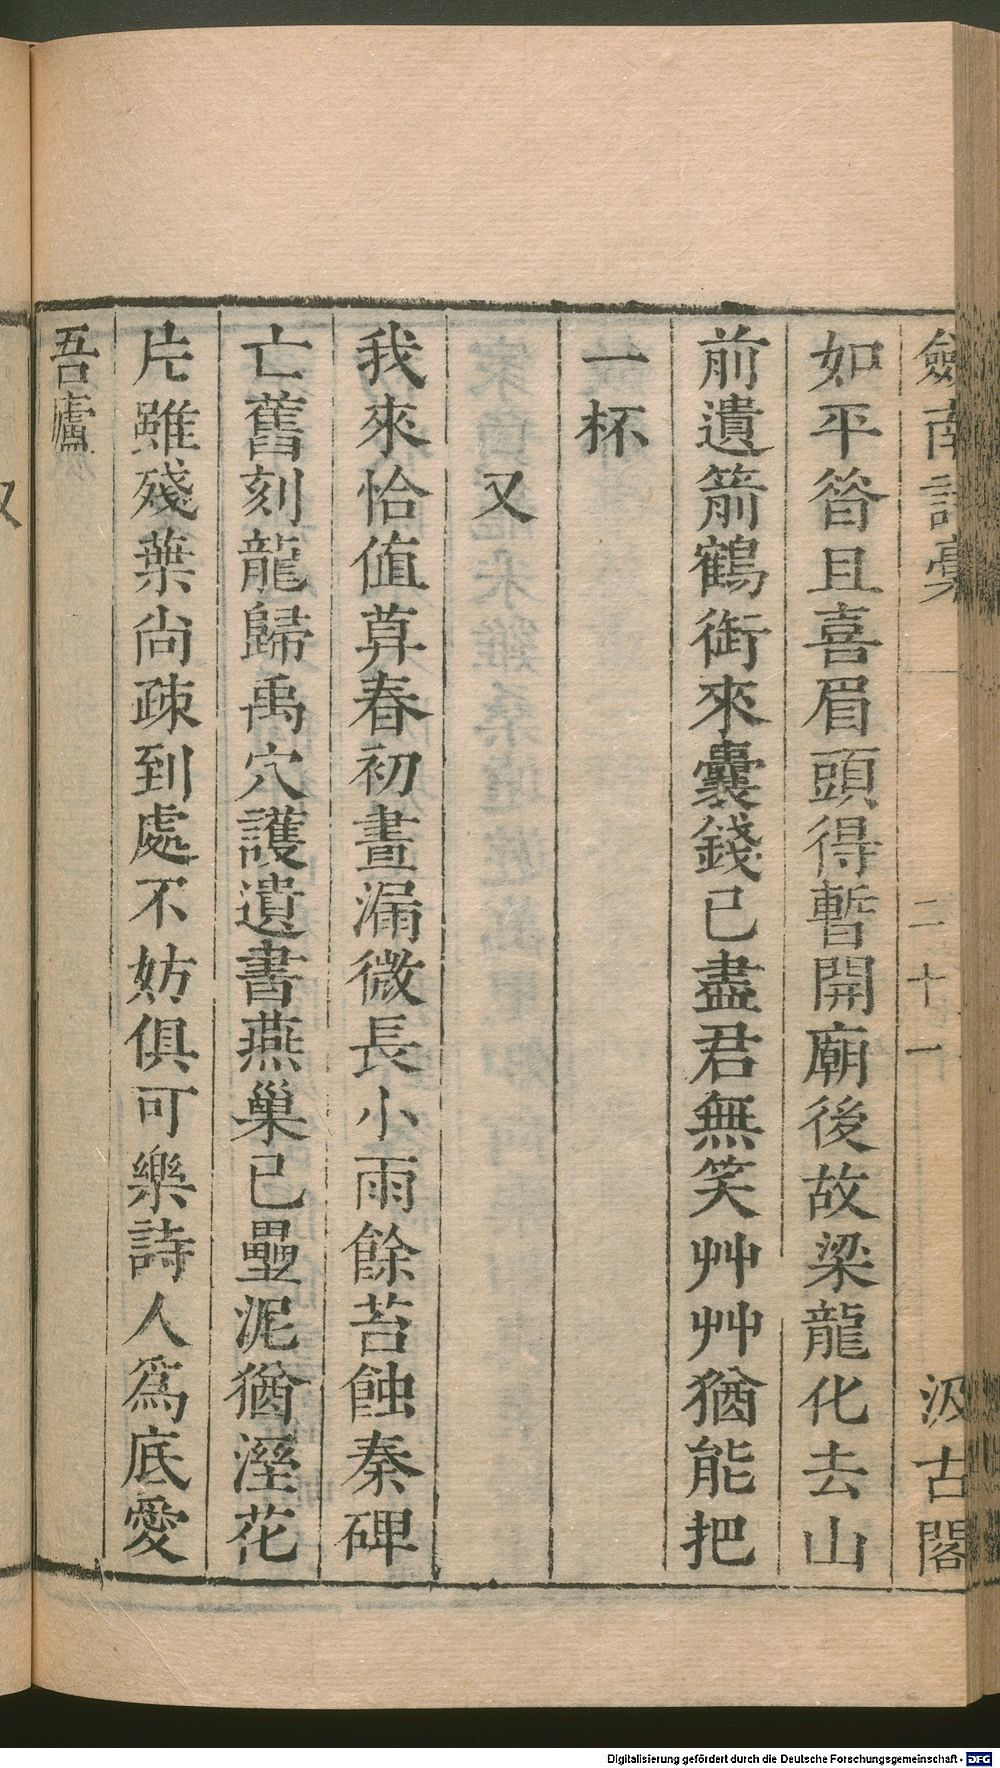 劍南詩稾 二十一 汲古閣
如平昝且喜眉頭得暫開廟後故梁龍化去山
前遺箭鶴銜來囊錢已盡君無笑艸艸猶能把
一杯
又
我來恰值暮春初晝漏微長小雨餘苔蝕秦碑
亡舊刻龍歸禹穴護遺書燕巢已壘泥猶溼花
片雖殘葉尚疎到處不妨俱可樂詩人爲底愛
吾廬
又
Digitalisierung gefördert durch die Deutsche Forschungsgemeinschaft - DFG